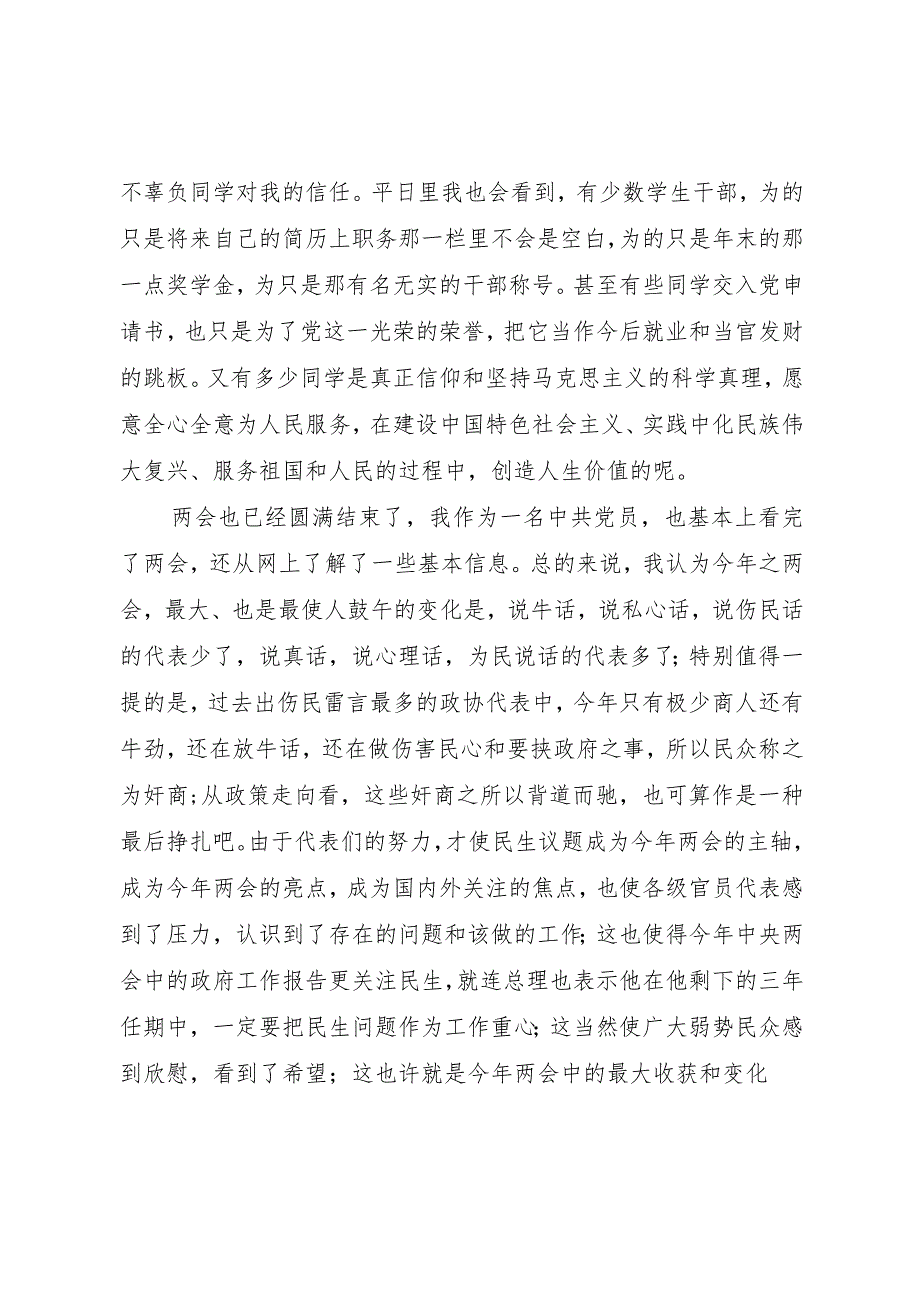 不辜负同学对我的信任。平日里我也会看到，有少数学生干部，为的
只是将来自己的简历上职务那一栏里不会是空白，为的只是年末的那
一点奖学金，为只是那有名无实的干部称号。甚至有些同学交入党申
请书，也只是为了党这一光荣的荣誉，把它当作今后就业和当官发财
的跳板。又有多少同学是真正信仰和坚持马克思主义的科学真理，愿
意全心全意为人民服务，在建设中国特色社会主义、实践中化民族伟
大复兴、服务祖国和人民的过程中，创造人生价值的呢。
两会也已经圆满结束了，我作为一名中共党员，也基本上看完
了两会，还从网上了解了一些基本信息。总的来说，我认为今年之两
会，最大、也是最使人鼓午的变化是，说牛话，说私心话，说伤民话
的代表少了，说真话，说心理话，为民说话的代表多了；特别值得一
提的是，过去出伤民雷言最多的政协代表中，今年只有极少商人还有
牛劲，还在放牛话，还在做伤害民心和要挟政府之事，所以民众称之
为奸商；从政策走向看，这些奸商之所以背道而驰，也可算作是一种
最后挣扎吧。由于代表们的努力，才使民生议题成为今年两会的主轴，
成为今年两会的亮点，成为国内外关注的焦点，也使各级官员代表感
到了压力，认识到了存在的问题和该做的工作；这也使得今年中央两
会中的政府工作报告更关注民生，就连总理也表示他在他剩下的三年
任期中，一定要把民生问题作为工作重心；这当然使广大弱势民众感
到欣慰，看到了希望；这也许就是今年两会中的最大收获和变化